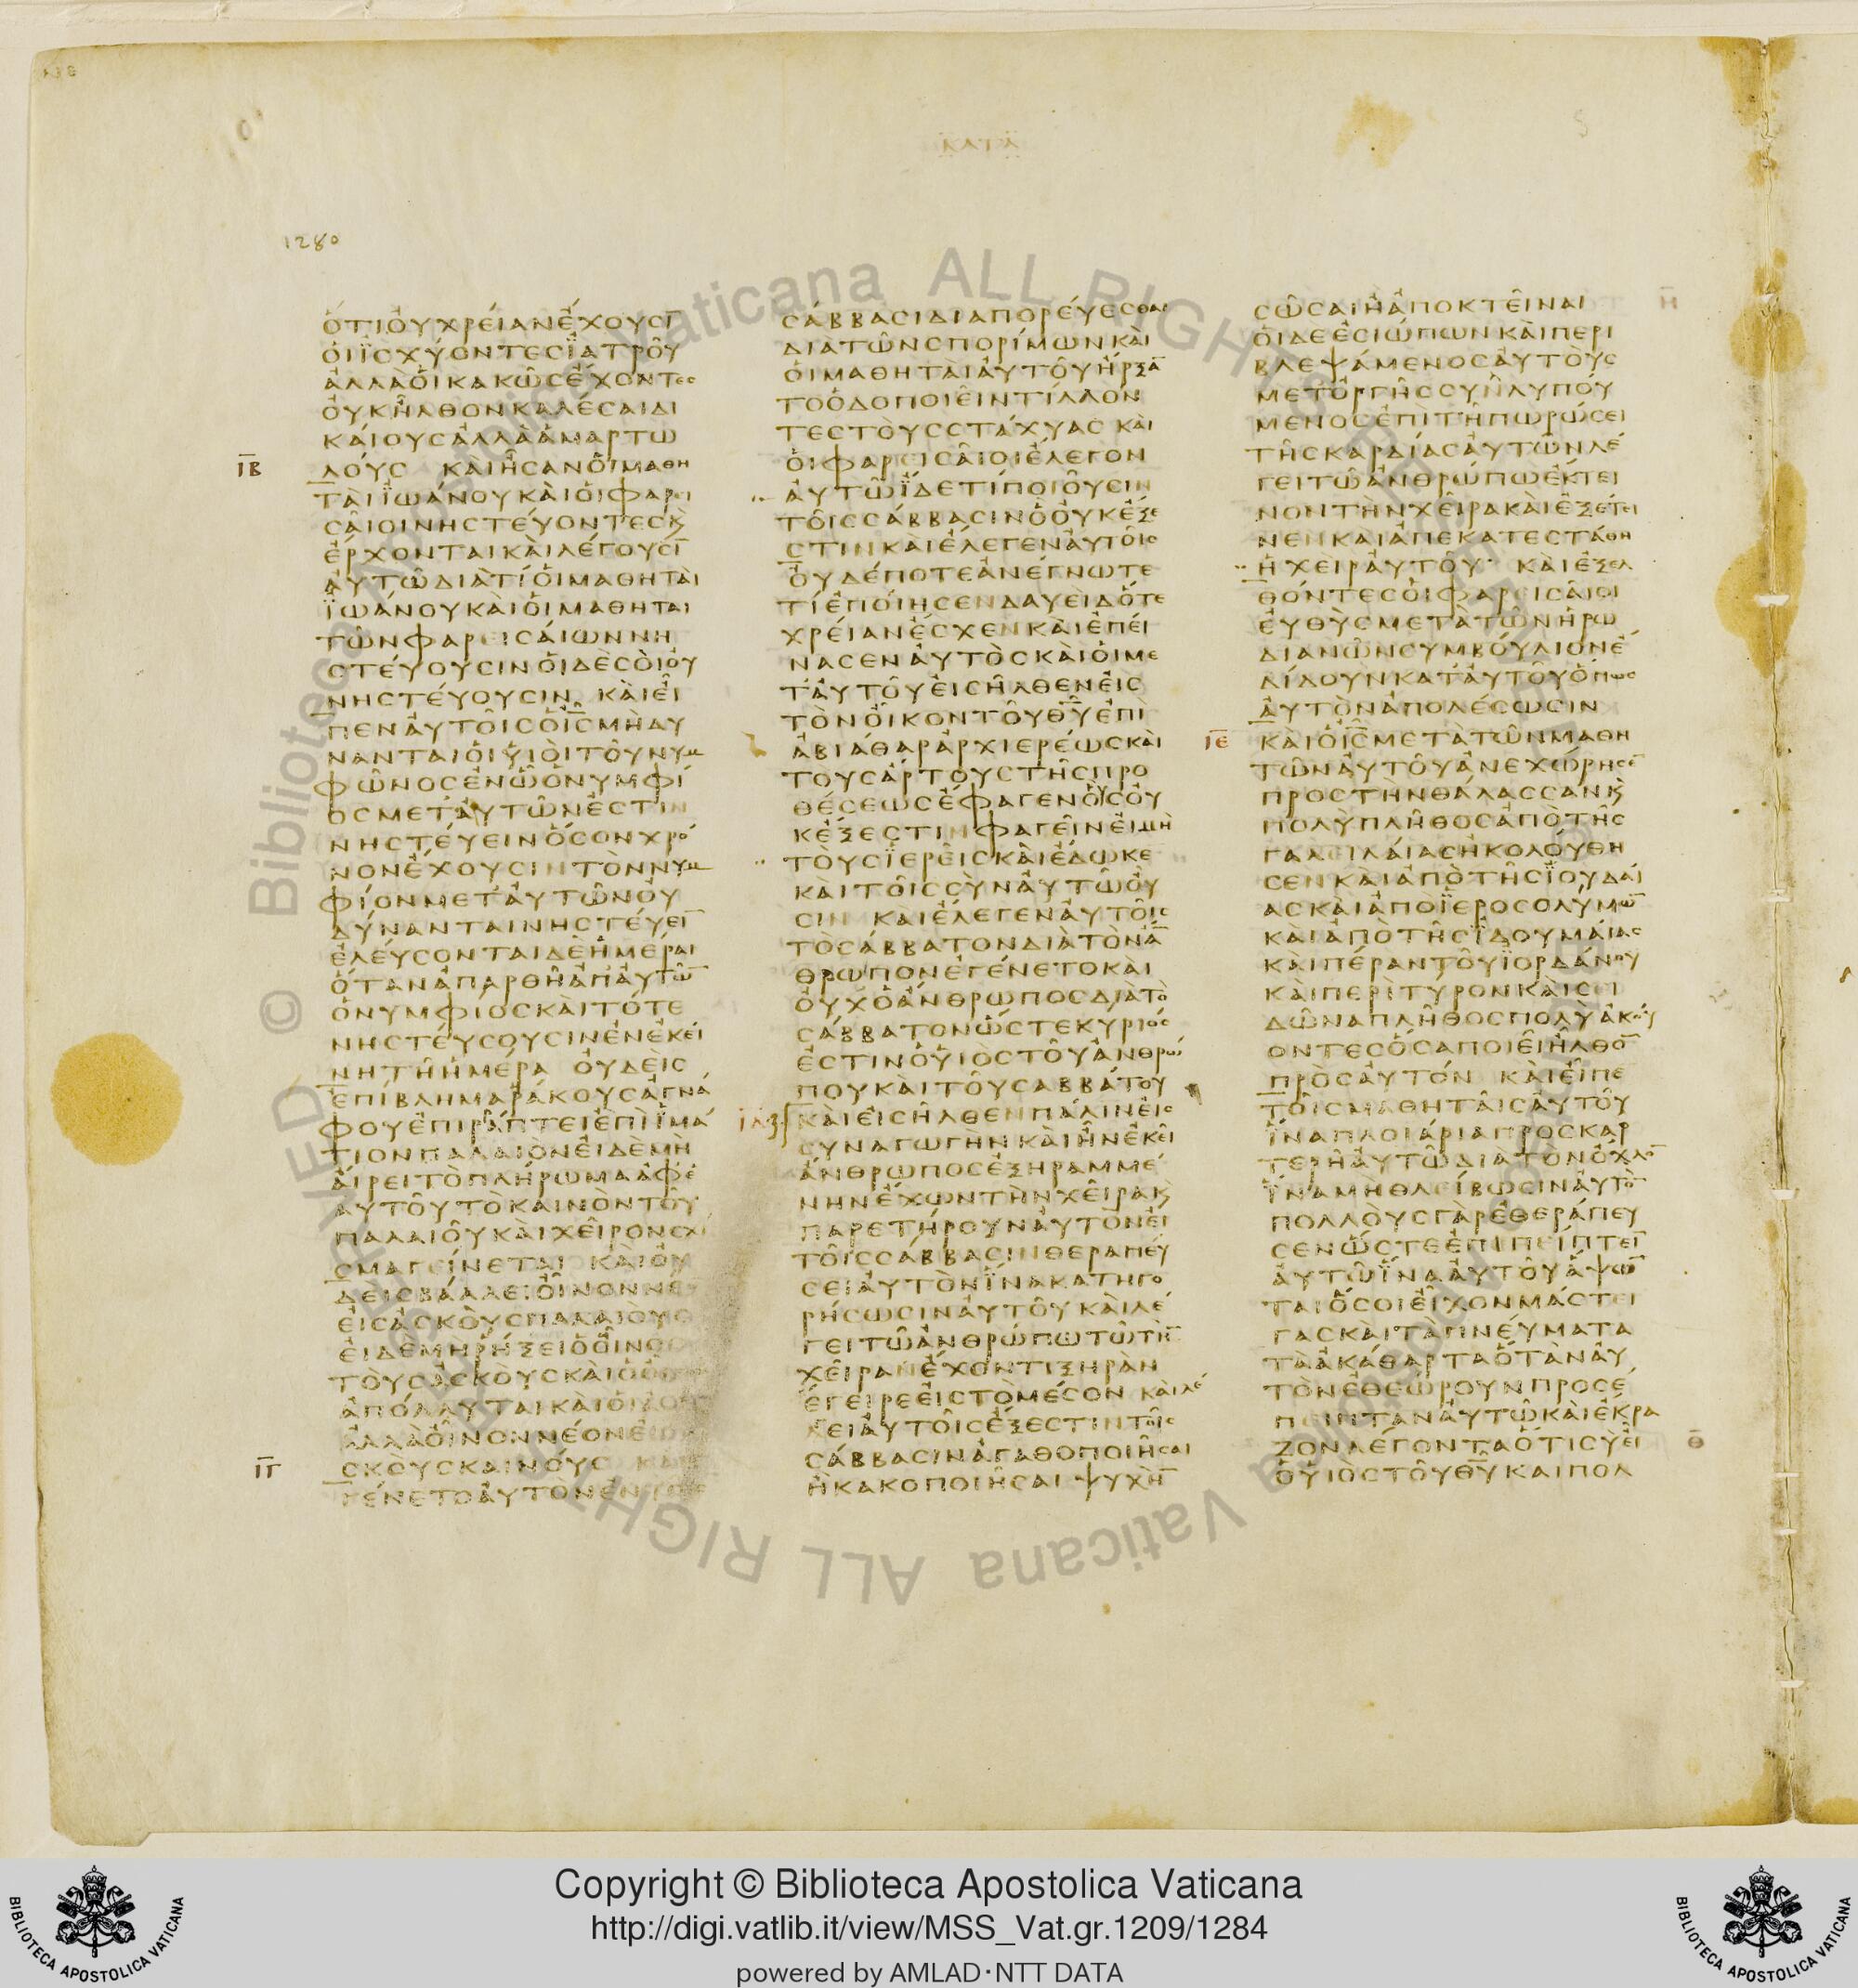 ΚΑΤΑ
1280
ΟΤΙΟΥΧΡΕΙΑΝΕΧΟΥΣΙ̅
ΟΙΪΣΧΥΟΝΤΕΣΪΑΤΡΟΥ
ΑΛΛΑΟΙΚΑΚΩΣΕΧΟΝΤΕΣ
ΟΥΚΗΛΘΟΝΚΑΛΕΣΑΙΔΙ
ΚΑΙΟΥΣΑΛΛΑΑΜΑΡΤΩ
ΙΒ̅ ΛΟΥΣ ΚΑΙΗΣΑΝΟΙΜΑΘΗ
ΤΑΙΪΩΑΝΟΥΚΑΙΟΙΦΑΡΕΙ
ΣΑΙΟΙΝΗΣΤΕΥΟΝΤΕΣϏ
ΕΡΧΟΝΤΑΙΚΑΙΛΕΓΟΥΣΙ̅
ΑΥΤΩΔΙΑΤΙΟΙΜΑΘΗΤΑΙ
ΪΩΑΝΟΥΚΑΙΟΙΜΑΘΗΤΑΙ
ΤΩΝΦΑΡΕΙΣΑΙΩΝΝΗ
ΣΤΕΥΟΥΣΙΝΟΙΔΕΣΟΙΟΥ
ΝΗΣΤΕΥΟΥΣΙΝ ΚΑΙΕΙ
ΠΕΝΑΥΤΟΙΣΟΙ̅Σ̅ΜΗΔΥ
ΝΑΝΤΑΙΟΙΥΙΟΙΤΟΥΝΥΜ
ΦΩΝΟΣΕΝΩΟΝΥΜΦΙ
ΟΣΜΕΤΑΥΤΩΝΕΣΤΙΝ
ΝΗΣΤΕΥΕΙΝΟΣΟΝΧΡΟ
ΝΟΝΕΧΟΥΣΙΝΤΟΝΝΥΜ
ΦΙΟΝΜΕΤΑΥΤΩΝΟΥ
ΔΥΝΑΝΤΑΙΝΗΣΤΕΥΕΙ̅
ΕΛΕΥΣΟΝΤΑΙΔΕΗΜΕΡΑΙ
ΟΤΑΝΑΠΑΡΘΗΑΠΑΥΤΩ̅
ΟΝΥΜΦΙΟΣΚΑΙΤΟΤΕ
ΝΗΣΤΕΥΣΟΥΣΙΝΕΝΕΚΕΙ
ΝΗΤΗΗΜΕΡΑ ΟΥΔΕΙΣ
ΕΠΙΒΛΗΜΑΡΑΚΟΥΣΑΓΝΑ
ΦΟΥΕΠΙΡΑΠΤΕΙΕΠΙΪΜΑ
ΤΙΟΝΠΑΛΑΙΟΝΕΙΔΕΜΗ
ΑΙΡΕΙΤΟΠΛΗΡΩΜΑΑΦΕ
ΑΥΤΟΥΤΟΚΑΙΝΟΝΤΟΥ
ΠΑΛΑΙΟΥΚΑΙΧΕΙΡΟΝΣΧΙ
ΣΜΑΓΕΙΝΕΤΑΙ ΚΑΙΟΥ
ΔΕΙΣΒΑΛΛΕΙΟΙΝΟΝΝΕ
ΕΙΣΑΣΚΟΥΣΠΑΛΑΙΟΥΣ
ΕΙΔΕΜΗΡΗΞΕΙΟΟΙΝΟΣ
ΤΟΥΣΑΣΚΟΥΣΚΑΙΟ
ΑΠΟΛΛΥΤΑΙΚΑΙΟΙ
ΑΛΛΑΟΙΝΟΝΝΕΟΝΕΙΣ
ΙΓ̅ ΣΚΟΥΣΚΑΙΝΟΥΣ ΚΑΙ
ΓΕΝΕΤΟΑΥΤΟΝΕΝ
ΣΑΒΒΑΣΙΔΙΑΠΟΡΕΥΕΣΘΑΙ
ΔΙΑΤΩΝΣΠΟΡΙΜΩΝΚΑΙ
ΟΙΜΑΘΗΤΑΙΑΥΤΟΥΗΡΞΑ̅
ΤΟΟΔΟΠΟΙΕΙΝΤΙΛΛΟΝ
ΤΕΣΤΟΥΣΣΤΑΧΥΑΣ ΚΑΙ
ΟΙΦΑΡΕΙΣΑΙΟΙΕΛΕΓΟΝ
ΑΥΤΩΪΔΕΤΙΠΟΙΟΥΣΙΝ
ΤΟΙΣΣΑΒΒΑΣΙΝΟΟΥΚΕΞΕ
ΣΤΙΝΚΑΙΕΛΕΓΕΝΑΥΤΟΙΣ
ΟΥΔΕΠΟΤΕΑΝΕΓΝΩΤΕ
ΤΙΕΠΟΙΗΣΕΝΔΑΥΕΙΔΟΤΕ
ΧΡΕΙΑΝΕΣΧΕΝΚΑΙΕΠΕΙ
ΝΑΣΕΝΑΥΤΟΣΚΑΙΟΙΜΕ
ΤΑΥΤΟΥΕΙΣΗΛΘΕΝΕΙΣ
ΤΟΝΟΙΚΟΝΤΟΥΘ̅Υ̅ΕΠΙ
ΑΒΙΑΘΑΡΑΡΧΙΕΡΕΩΣΚΑΙ
ΤΟΥΣΑΡΤΟΥΣΤΗΣΠΡΟ
ΘΕΣΕΩΣΕΦΑΓΕΝΟΥΣΟΥ
ΚΕΞΕΣΤΙΝΦΑΓΕΙΝΕΙΜΗ
ΤΟΥΣΪΕΡΕΙΣΚΑΙΕΔΩΚΕ
ΚΑΙΤΟΙΣΣΥΝΑΥΤΩΟΥ
ΣΙΝ ΚΑΙΕΛΕΓΕΝΑΥΤΟΙΣ
ΤΟΣΑΒΒΑΤΟΝΔΙΑΤΟΝΑ̅
ΘΡΩΠΟΝΕΓΕΝΕΤΟΚΑΙ
ΟΥΧΟΑΝΘΡΩΠΟΣΔΙΑΤΟ
ΣΑΒΒΑΤΟΝΩΣΤΕΚΥΡΙΟΣ
ΕΣΤΙΝΟΥΙΟΣΤΟΥΑΝΘΡΩ
ΠΟΥΚΑΙΤΟΥΣΑΒΒΑΤΟΥ
ΙΔ̅ ΚΑΙΕΙΣΗΛΘΕΝΠΑΛΙΝΕΙΣ
ΣΥΝΑΓΩΓΗΝΚΑΙΗΝΕΚΕΙ
ΑΝΘΡΩΠΟΣΕΞΗΡΑΜΜΕ
ΝΗΝΕΧΩΝΤΗΝΧΕΙΡΑϏ
ΠΑΡΕΤΗΡΟΥΝΑΥΤΟΝΕΙ
ΤΟΙΣΣΑΒΒΑΣΙΝΘΕΡΑΠΕΥ
ΣΕΙΑΥΤΟΝΪΝΑΚΑΤΗΓΟ
ΡΗΣΩΣΙΝΑΥΤΟΥΚΑΙΛΕ
ΓΕΙΤΩΑΝΘΡΩΠΩΤΩΤΗ̅
ΧΕΙΡΑΝΕΧΟΝΤΙΞΗΡΑΝ
ΕΓΕΙΡΕΕΙΣΤΟΜΕΣΟΝ ΚΑΙΛΕ
ΓΕΙΑΥΤΟΙΣΕΞΕΣΤΙΝΤΟΙΣ
ΣΑΒΒΑΣΙΝΑΓΑΘΟΠΟΙΗΣΑΙ
ΗΚΑΚΟΠΟΙΗΣΑΙΨΥΧΗ̅
ΣΩΣΑΙΗΑΠΟΚΤΕΙΝΑΙ Η̅
ΟΙΔΕΕΣΙΩΠΩΝΚΑΙΠΕΡΙ
ΒΛΕΨΑΜΕΝΟΣΑΥΤΟΥΣ
ΜΕΤΟΡΓΗΣΣΥΝΛΥΠΟΥ
ΜΕΝΟΣΕΠΙΤΗΠΩΡΩΣΕΙ
ΤΗΣΚΑΡΔΙΑΣΑΥΤΩΝΛΕ
ΓΕΙΤΩΑΝΘΡΩΠΩΕΚΤΕΙ
ΝΟΝΤΗΝΧΕΙΡΑΚΑΙΕΞΕΤΕΙ
ΝΕΝΚΑΙΑΠΕΚΑΤΕΣΤΑΘΗ
ΗΧΕΙΡΑΥΤΟΥ ΚΑΙΕΞΕΛ
ΘΟΝΤΕΣΟΙΦΑΡΕΙΣΑΙΟΙ
ΕΥΘΥΣΜΕΤΑΤΩΝΗΡΩ
ΔΙΑΝΩΝΣΥΜΒΟΥΛΙΟΝΕ
ΔΙΔΟΥΝΚΑΤΑΥΤΟΥΟΠΩΣ
ΑΥΤΟΝΑΠΟΛΕΣΩΣΙΝ
ΙΕ̅ ΚΑΙΟΙ̅Σ̅ΜΕΤΑΤΩΝΜΑΘΗ
ΤΩΝΑΥΤΟΥΑΝΕΧΩΡΗΣΕ̅
ΠΡΟΣΤΗΝΘΑΛΑΣΣΑΝϏ
ΠΟΛΥΠΛΗΘΟΣΑΠΟΤΗΣ
ΓΑΛΕΙΛΑΙΑΣΗΚΟΛΟΥΘΗ
ΣΕΝΚΑΙΑΠΟΤΗΣΪΟΥΔΑΙ
ΑΣΚΑΙΑΠΟΪΕΡΟΣΟΛΥΜΩ̅
ΚΑΙΑΠΟΤΗΣΪΔΟΥΜΑΙΑΣ
ΚΑΙΠΕΡΑΝΤΟΥΪΟΡΔΑΝΟΥ
ΚΑΙΠΕΡΙΤΥΡΟΝΚΑΙΣΙ
ΔΩΝΑΠΛΗΘΟΣΠΟΛΥΑΚΟΥ
ΟΝΤΕΣΟΣΑΠΟΙΕΙΗΛΘΟ̅
ΠΡΟΣΑΥΤΟΝ ΚΑΙΕΙΠΕ
ΤΟΙΣΜΑΘΗΤΑΙΣΑΥΤΟΥ
ΪΝΑΠΛΟΙΑΡΙΑΠΡΟΣΚΑΡ
ΤΕΡΗΑΥΤΩΔΙΑΤΟΝΟΧΛΟ̅
ΪΝΑΜΗΘΛΕΙΒΩΣΙΝΑΥΤΟ̅
ΠΟΛΛΟΥΣΓΑΡΕΘΕΡΑΠΕΥ
ΣΕΝΩΣΤΕΕΠΙΠΕΙΠΤΕΙ̅
ΑΥΤΩΪΝΑΑΥΤΟΥΑΨΩ̅
ΤΑΙΟΣΟΙΕΙΧΟΝΜΑΣΤΕΙ
ΓΑΣΚΑΙΤΑΠΝΕΥΜΑΤΑ
ΤΑΑΚΑΘΑΡΤΑΟΤΑΝΑΥ
ΤΟΝΕΘΕΩΡΟΥΝΠΡΟΣΕ
ΠΕΙΠΤΑΝΑΥΤΩΚΑΙΕΚΡΑ
ΖΟΝΛΕΓΟΝΤΑΟΤΙΣΥΕΙ Θ̅
ΟΥΙΟΣΤΟΥΘ̅Υ̅ΚΑΙΠΟΛ
© Biblioteca Apostolica Vaticana ALL RIGHTS RESERVED
Copyright © Biblioteca Apostolica Vaticana
http://digi.vatlib.it/view/MSS_Vat.gr.1209/1284
powered by AMLAD·NTT DATA
BIBLIOTECA APOSTOLICA VATICANA
BIBLIOTECA APOSTOLICA VATICANA